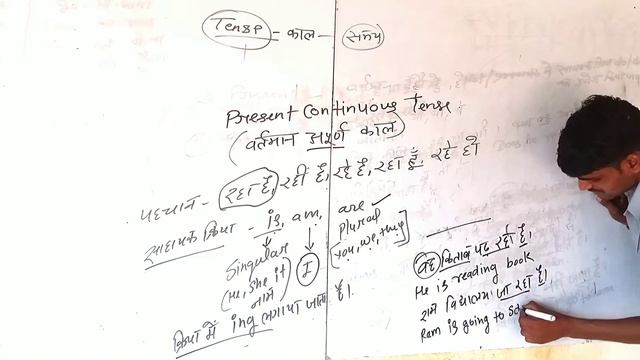 Tense = काल - समय
Present Continuous Tense
(वर्तमान अपूर्ण काल)
पहचान - रहा है, रही है, रहे हैं, रहा हूँ, रहे हो
सहायक क्रिया - is, am, are
Singular I Plural
(He, She it [You, we, they]
नाम)
क्रिया में ing लगाया जाता है।
वह किताब पढ़ रहा है,
He is reading book
राम विद्यालय जा रहा है।
Ram is going to Sc